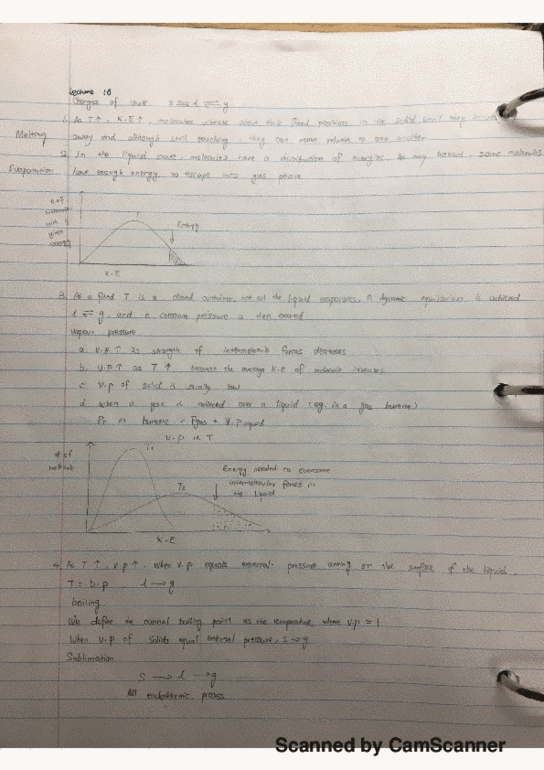 Lecture 16
Changes of state s ⇌ l ⇌ g
1. As T↑, K.E↑, molecules vibrate about their fixed positions in the solid until they
Melting away and although still touching, they can move relative to one another
2. In the liquid state, molecules have a distribution of energies. At any instant, some molecules
Evaporation have enough energy to escape into gas phase
# of
molecules
with a
given
energy
T
Energy
K.E
3. At a fixed T in a closed container, not all the liquid evaporates. A dynamic equilibrium is achieved
l ⇌ g, and a constant pressure is then exerted
Vapour pressure
a. V.P↑ as strength of intermolecular forces decreases
b. V.P↑ as T↑ because the average K.E of molecule increases
c. V.p of solid is really low
d. When a gas is collected over a liquid (eg. in a gas burette)
PT in burette = Pgas + V.P liquid
V.P ∝ T
# of
molecule
T1
T2
Energy needed to overcome
intermolecular forces in
the liquid
K.E
4. As T↑, V.p↑. When V.p equals external pressure acting on the surface of the liquid,
T = b.p l → g
boiling
We define the normal boiling point as the temperature where V.p = 1
When V.p of solids equal external pressure, s → g
Sublimation
s → l → g
All endothermic process
Scanned by CamScanner